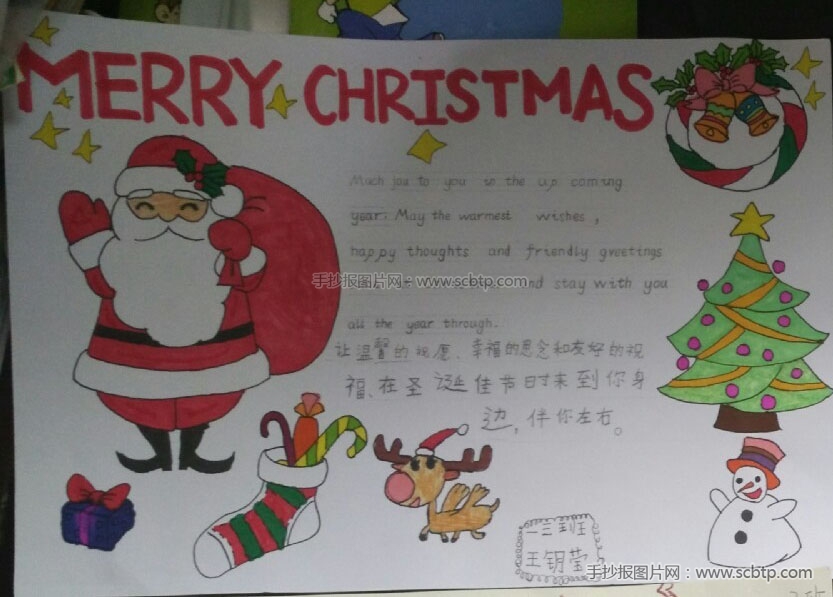 MERRY CHRISTMAS
Much jou to you in the up coming
year. May the warmest wishes,
happy thoughts and friendly greetings
手抄报图片网：www.scbtp.com
and stay with you
all the year through.
让温馨的祝愿、幸福的思念和友好的祝
福、在圣诞佳节时来到你身
边，伴你左右。
一三班
王钥莹
手抄报图片网：www.scbtp.com